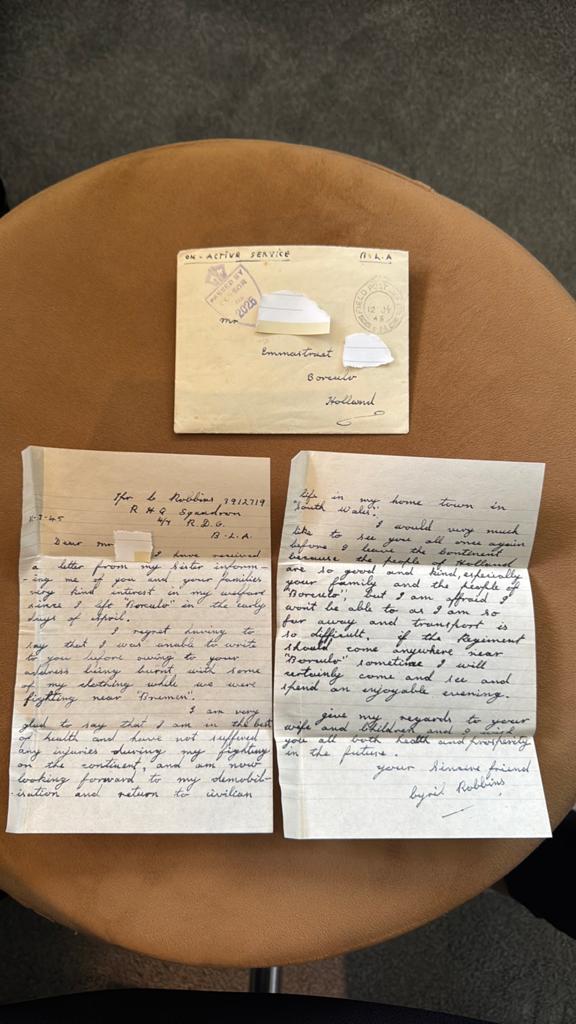 ON - ACTIVE SERVICE
B.L.A
PASSED BY
CENSOR
2026
FIELD POST
12 JY
45
Mr
Emmastraat
Borculo
Holland
Tpr C Robbins 3912719
R H Q Squadron
4/7 R.D.G.
B.L.A.
-7-45
Dear Mr
I have received
a letter from my sister inform-
-ing me of you and your families
very kind interest in my welfare
since I left "Borculo" in the early
days of April.
I regret having to
say that I was unable to write
to you before owing to your
address being burnt with some
of my clothing while we were
fighting near "Bremen".
I am very
glad to say that I am in the best
of health and have not suffered
any injuries during my fighting
on the continent, and am now
looking forward to my demobil-
-isation and return to civilian
life in my home town in
"South Wales".
I would very much
like to see you all once again
before I leave the continent
because the people of Holland
are so good and kind, especially
your family and the people of
"Borculo", but I am afraid I
won't be able to as I am so
far away and transport is
so difficult. if the Regiment
should come anywhere near
"Borculo" sometime I will
certainly come and see and
spend an enjoyable evening.
give my regards to your
wife and children and I wish
you all both health and prosperity
in the future.
your sincere friend
Cyril Robbins